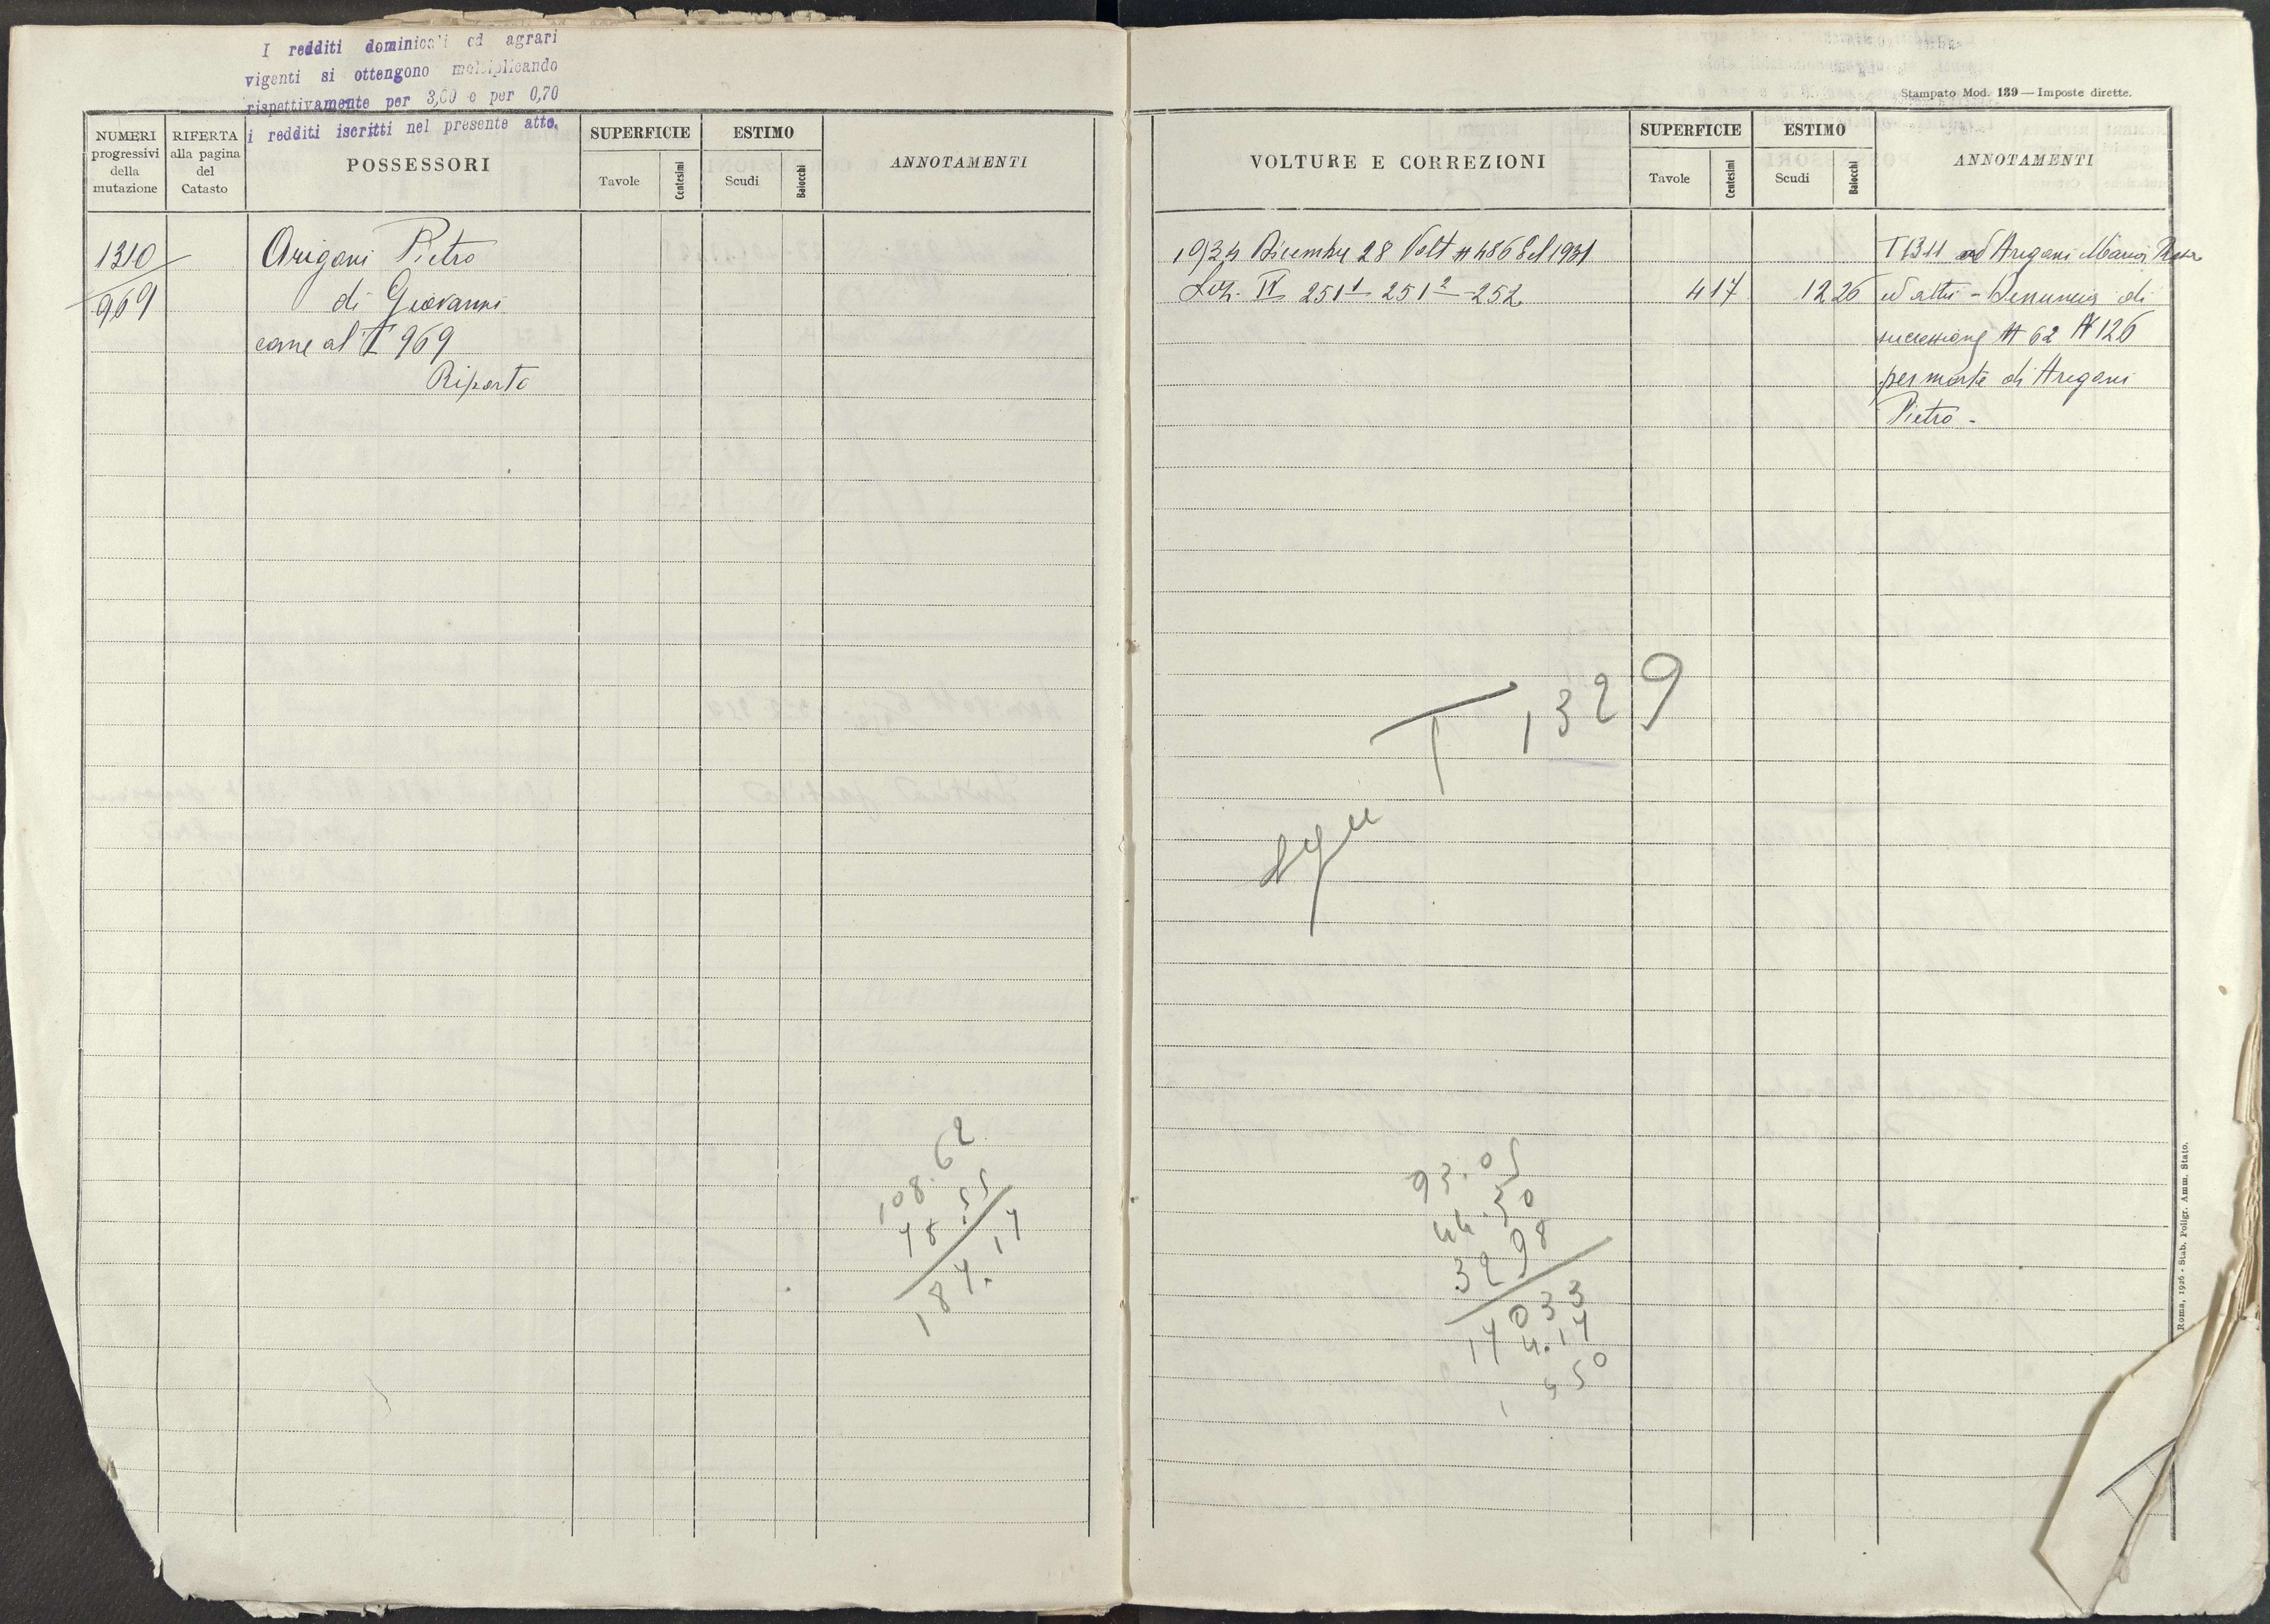 I redditi dominicali ed agrari
vigenti si ottengono moltiplicando
rispettivamente per 3,60 e per 0,70
i redditi iscritti nel presente atto.
NUMERI progressivi della mutazione
RIFERTA alla pagina del Catasto
POSSESSORI
SUPERFICIE
Tavole
Centesimi
ESTIMO
Scudi
Baiocchi
ANNOTAMENTI
1310
969
Arigani Pietro
di Giovanni
come al T 969
Riporto
108.62
78.55
187.17
Stampato Mod. 139 — Imposte dirette.
VOLTURE E CORREZIONI
SUPERFICIE
Tavole
Centesimi
ESTIMO
Scudi
Baiocchi
ANNOTAMENTI
1934 Dicembre 28 Volt # 486 del 1931
Sez. VI 251 1 251 2 - 252
4 17
12 26
T 1311 ad Arigani Maria Rosa
ed altri - Denuncia di
successione # 62 # 126
per morte di Arigani
Pietro -
T 1329
segue
93.05
44.30
32 98
17 033
4.17
50
Roma, 1926 - Stab. Poligr. Amm. Stato.